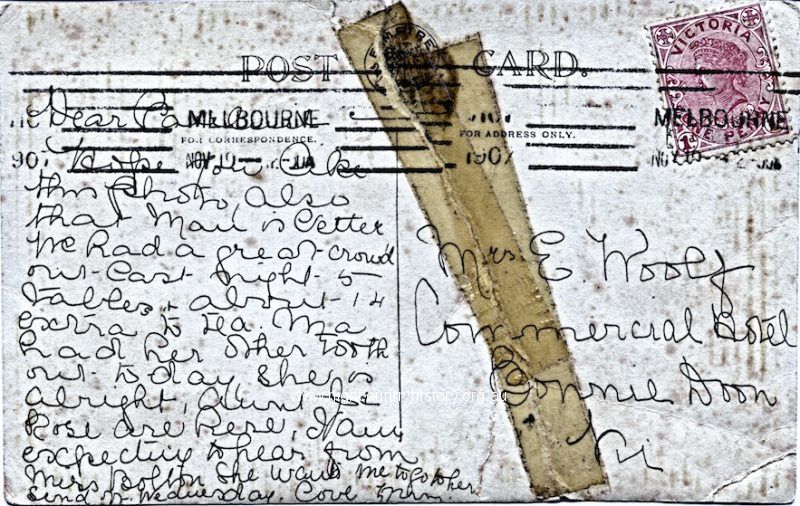 POST CARD.
VICTORIA
ONE PENNY
MELBOURNE
MELBOURNE
FOR CORRESPONDENCE.
FOR ADDRESS ONLY.
1907
NOV 10
Dear
Hope you like
this photo, also
that Mau is better
We had a great crowd
out last night 5
tables + about 14
extra to tea. Ma
had her other tooth
out to day she is
alright, Aunt
Rose are here, I am
expecting to hear from
Miss Bolton she wants me to go to her
send on Wednesday Love
Mrs. E. Woolf
Commercial Hotel
Bonnie Doon
Vic